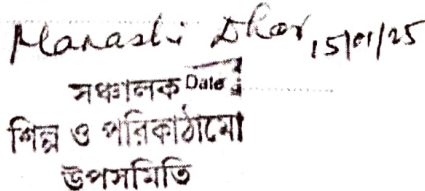 Manashi Dhar, 15/01/25
সঞ্চালক Date
শিল্প ও পরিকাঠামো
উপসমিতি